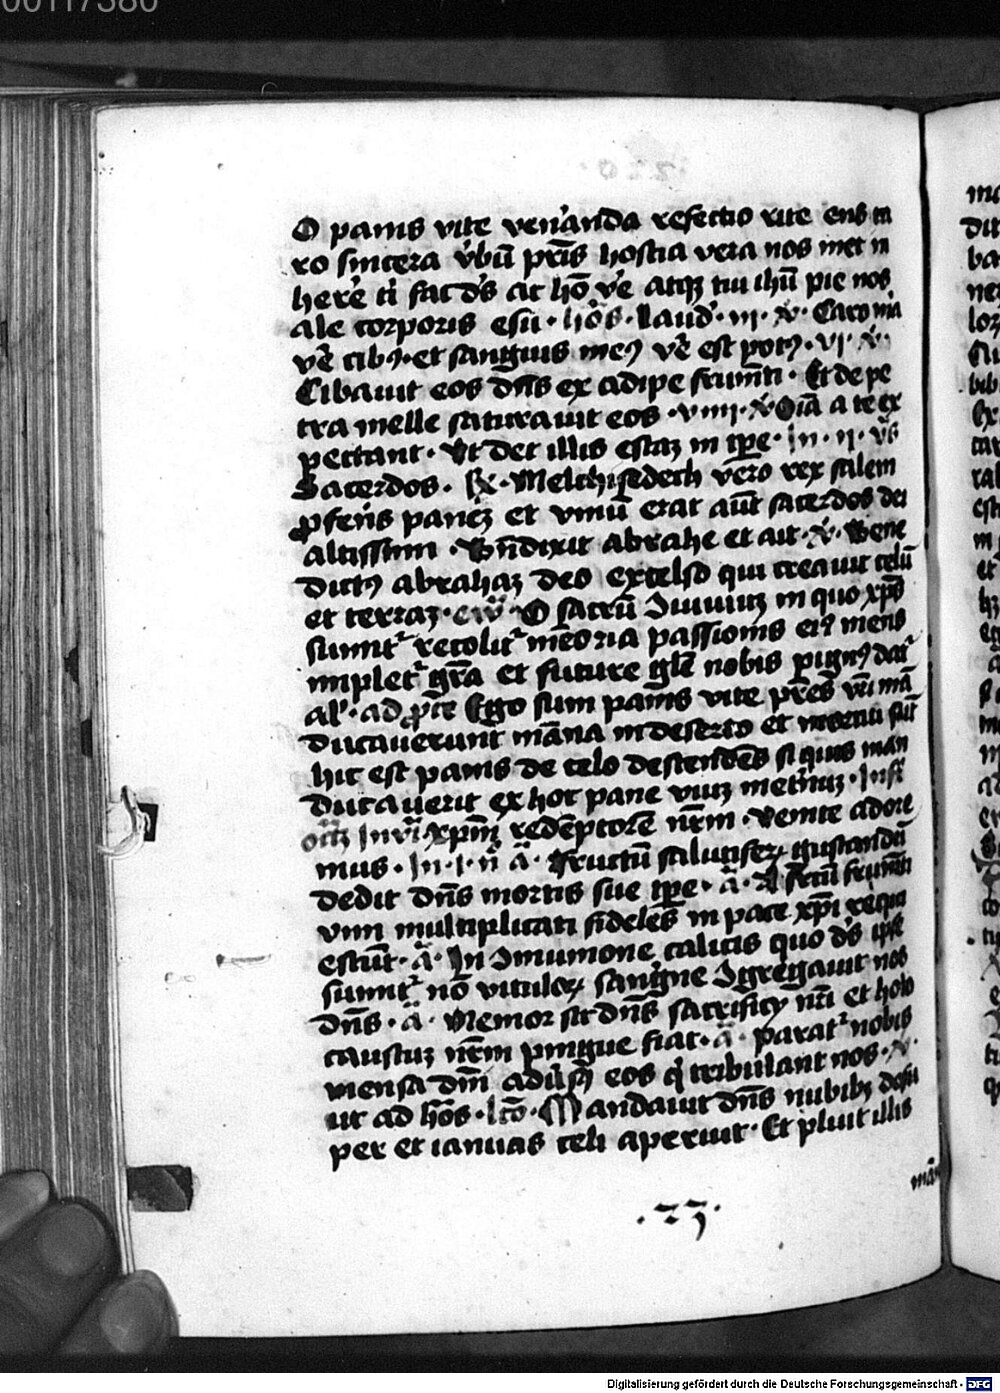 00117380
O panis vite ven'anda refectio rite ens m
ro sincera v̄bū pr̄is hostia vera nos
here ti fac ac hō ve atqꝫ tui ihū pie nos
ale corporis esu · hōs · laud' · iii · v̄ · Caro mia
vē cibꝰ · et sanguis meꝰ vē est potꝰ · vi · v̄ ·
Cibavit eos dn̄s ex adipe frumēti · Et de pe
tra melle saturavit eos · viiii · v̄ Oīa a te ex
pectant · Ut det illis escaꝫ in tp̄e · In · ii · vs̄
Sacerdos · ℟ · Melchisedech vero rex salem
ꝓferēs paneꝫ et vinū erat aūt sacerdos dei
altissimi · Bn̄dixit abrahe et ait · v̄ · Bene
dictꝰ abrahaꝫ deo excelso qui creavit celū
et terraꝫ · O sacrū ꝯviviuꝫ in quo xp̄s
sumit᷑ recolit᷑ mēoria passionis eiꝰ mens
implet᷑ gr̄a et future gl̄e nobis pignꝰ dat᷑
al' · ad ꝓc̄e Ego sum panis vite pr̄es vr̄i mā
ducaverunt māna in deserto et mortui sūt
hic est panis de celo descendēs si quis man
ducaverit ex hoc pane vivꝫ in et'nuꝫ · Infr̄
octꝫ Invi xp̄m redēptorē nr̄m · Venite adore
mus · In · i · n̄ ā · Fructū salutiferꝫ gustandū
dedit dn̄s mortis sue tp̄e · ā · A fr̄cū frumēti
vini multiplicati fideles in pace xp̄i requi
escūt · ā · In ꝯmunione calicis quo d's ipse
sumit᷑ nō vituloꝝ sangine ꝯgregavit nos
dn̄s · ā · Memor sit dn̄s sacrificii nr̄i et holo
caustuꝫ nr̄m pingue fiat · ā · parat᷑ nobis
mensa dn̄i advs̄ꝰ eos qͥ tribulant nos · v̄ ·
ut ad hōs · lc̄o · Mandavit dn̄s nubibꝫ desu
per et ianuas celi aperuit · Et pluit illis
mā
· 23 ·
Digitalisierung gefördert durch die Deutsche Forschungsgemeinschaft - DFG